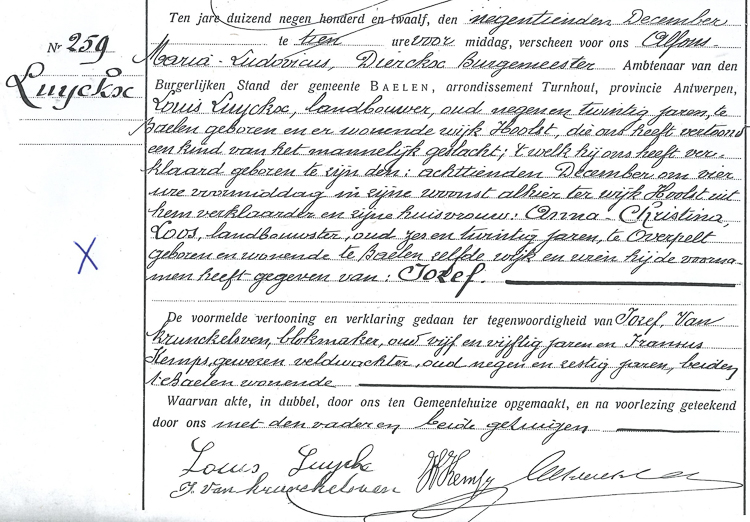 Nr 259
Luyckx
Ten jare duizend negen honderd en twaalf, den negentienden December
te tien ure voor middag, verscheen voor ons Alfons-
Maria-Ludovicus, Dierckx Burgemeester Ambtenaar van den
Burgerlijken Stand der gemeente BAELEN, arrondissement Turnhout, provincie Antwerpen,
Louis Luyckx, landbouwer, oud negen en twintig jaren, te
Baelen geboren en er wonende wijk Hoolst, die ons heeft vertoond
een kind van het mannelijk geslacht; 't welk hij ons heeft ver-
klaard geboren te zijn den: achttienden December om vier
ure voormiddag in zijne woonst alhier ter wijk Hoolst uit
hem verklaarder en zijne huisvrouw: Anna-Christina,
Loos, landbouwster, oud zes en twintig jaren, te Overpelt
geboren en wonende te Baelen zelfde wijk en wien hij de voorna-
men heeft gegeven van: Jozef.
De voormelde vertooning en verklaring gedaan ter tegenwoordigheid van Jozef, Van
Krunckelsven, blokmaker, oud vijf en vijftig jaren en Frannus
Kemps, gewezen veldwachter, oud negen en zestig jaren, beiden
te Baelen wonende
Waarvan akte, in dubbel, door ons ten Gemeentehuize opgemaakt, en na voorlezing geteekend
door ons met den vader en beide getuigen
Louis Luyckx
J. Van Krunckelsven